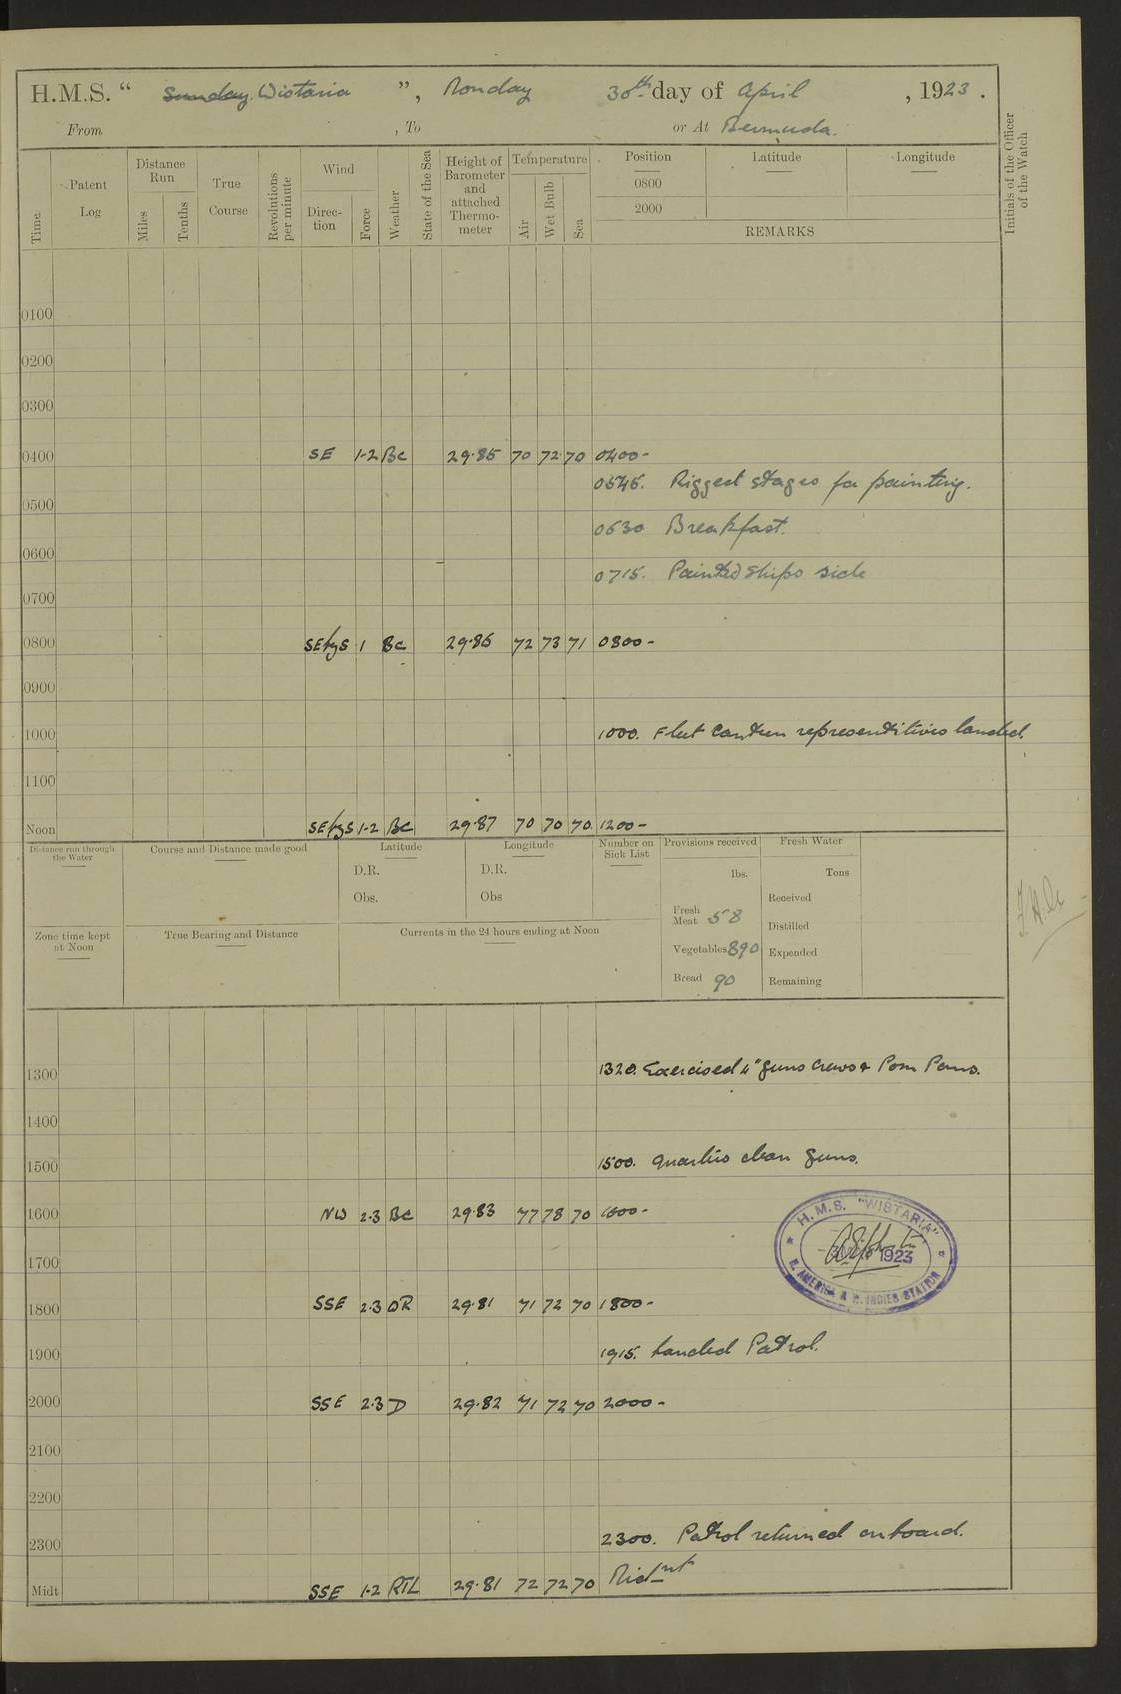 H.M.S. “ Sunday Wistaria ”, Monday 30th day of April , 1923 .
From , To or At Bermuda.
Time
Patent Log
Distance Run
Miles
Tenths
True Course
Revolutions per minute
Wind
Direction
Force
Weather
State of the Sea
Height of Barometer and attached Thermometer
Temperature
Air
Wet Bulb
Sea
Position
0800
2000
Latitude
Longitude
REMARKS
Initials of the Officer of the Watch
0100
0200
0300
0400 SE 1-2 BC 29.85 70 72 70 0400-
0545. Rigged stages for painting.
0500
0630 Breakfast.
0600
0715. Painted ships side
0700
0800 SEbyS 1 BC 29.86 72 73 71 0800-
0900
1000 1000. Fleet Canteen representitives landed.
1100
Noon SEbyS 1-2 BC 29.87 70 70 70 1200-
Distance run through the Water
Course and Distance made good
Latitude
D.R.
Obs.
Longitude
D.R.
Obs
Number on Sick List
Provisions received
lbs.
Fresh Meat 58
Vegetables 890
Bread 90
Fresh Water
Tons
Received
Distilled
Expended
Remaining
Zone time kept at Noon
True Bearing and Distance
Currents in the 24 hours ending at Noon
1300 1320. Exercised 4" guns crews & Pom Poms.
1400
1500 1500. Quarters clean guns.
1600 NW 2-3 BC 29.83 77 78 70 1600-
H.M.S. "WISTARIA"
1923
N. AMERICA & W. INDIES STATION
1700
1800 SSE 2-3 OR 29.81 71 72 70 1800-
1900 1915. Landed Patrol.
2000 SSE 2-3 D 29.82 71 72 70 2000-
2100
2200
2300 2300. Patrol returned onboard.
Midt SSE 1-2 RTL 29.81 72 72 70 Midnt